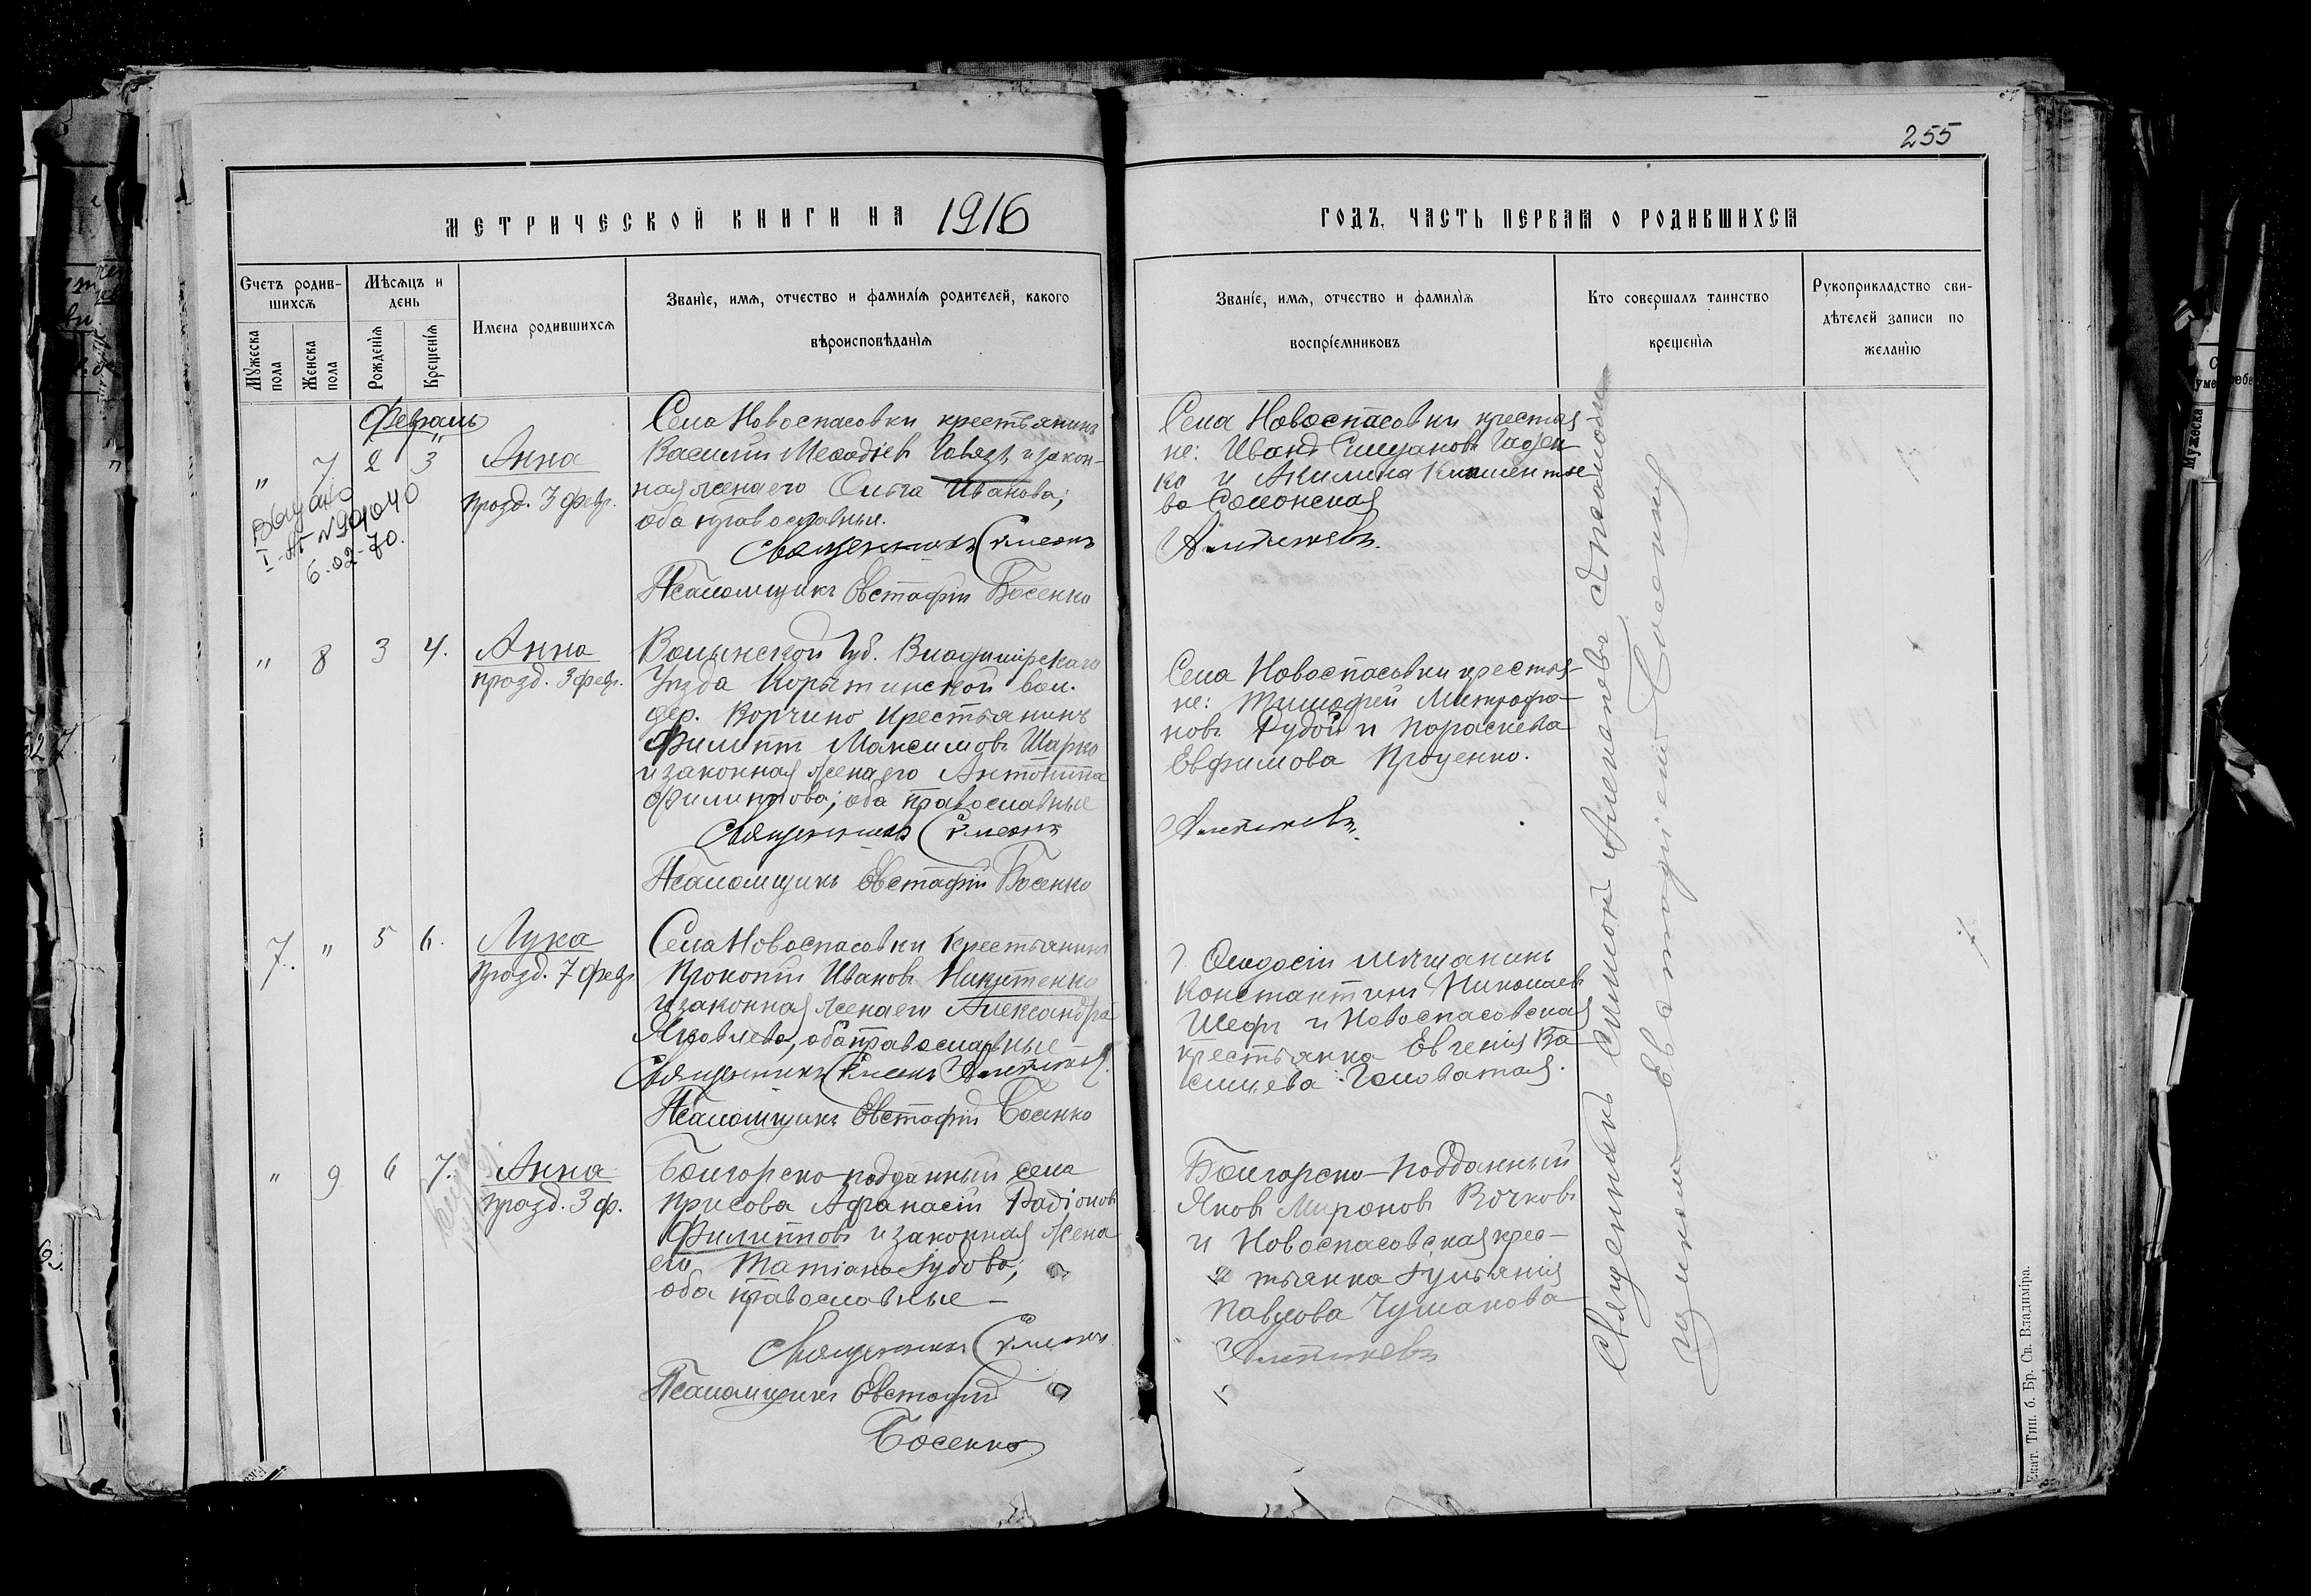 255
МЕТРИЧЕСКОЙ КНИГИ НА 1916
ГОДЪ, ЧАСТЬ ПЕРВАЯ О РОДИВШИХСЯ
Счетъ родив-
шихся
Мужеска
пола
Женска
пола
Мѣсяцъ и
день
Рожденія
Крещенія
Имена родившихся
Званіе, имя, отчество и фамилія родителей, какого
вѣроисповѣданія
Званіе, имя, отчество и фамилія
воспріемниковъ
Кто совершалъ таинство
крещенія
Рукоприкладство сви-
дѣтелей записи по
желанію
Февраль
" 7 2 3 Анна
празд. 3 февр.
Выдано
6.02-70.
Села Новоспасовки крестьянинъ
Василій Меѳодіевъ и закон-
ная жена его Ольга Иванова;
оба православные.
Священникъ Симеонъ
Псаломщикъ Евстафій Босенко
Села Новоспасовки крестья
не: Иванъ
ко и Акилина Климентье
ва
" 8 3 4. Анна
празд. 3 февр.
Волынской губ. Владимірскаго
уѣзда Корытинской вол.
дер. Ворчино крестьянинъ
Филиппъ Максимовъ Шарко
и законная жена его Антонина
Филиппова; оба православные
Священникъ Симеонъ
Псаломщикъ Евстафій Босенко
Села Новоспасовки крестья-
не: Тимофей Митрофа-
новъ Рудой и Параскева
Евфимова Проценко.
7. " 5 6. Лука
празд. 7 февр.
Села Новоспасовки крестьянинъ
Прокопій Ивановъ Никитенко
и законная жена его Александра
Яковлева, оба православные
Священникъ Симеонъ
Псаломщикъ Евстафій Босенко
г. Ѳеодосіи мѣщанинъ
Константинъ Николаевъ
Шефъ и Новоспасовская
крестьянка Евгенія Ва
сильева Головатая.
" 9 6 7. Анна
празд. 3 ф.
Болгарско-подданный села
Крисова Афанасій Радіоновъ
Филипповъ и законная жена
его Татіана
оба православные —
Священникъ Симеонъ
Псаломщикъ Евстафій
Босенко
Болгарско-подданный
Яковъ Мироновъ Вочковъ
и Новоспасовская крес-
тьянка Іульянія
Павлова Чумакова
Священникъ Симеонъ съ псаломъ
щикомъ Евстафіемъ Босенко
Екат. Тип. б. Бр. Св. Владиміра.